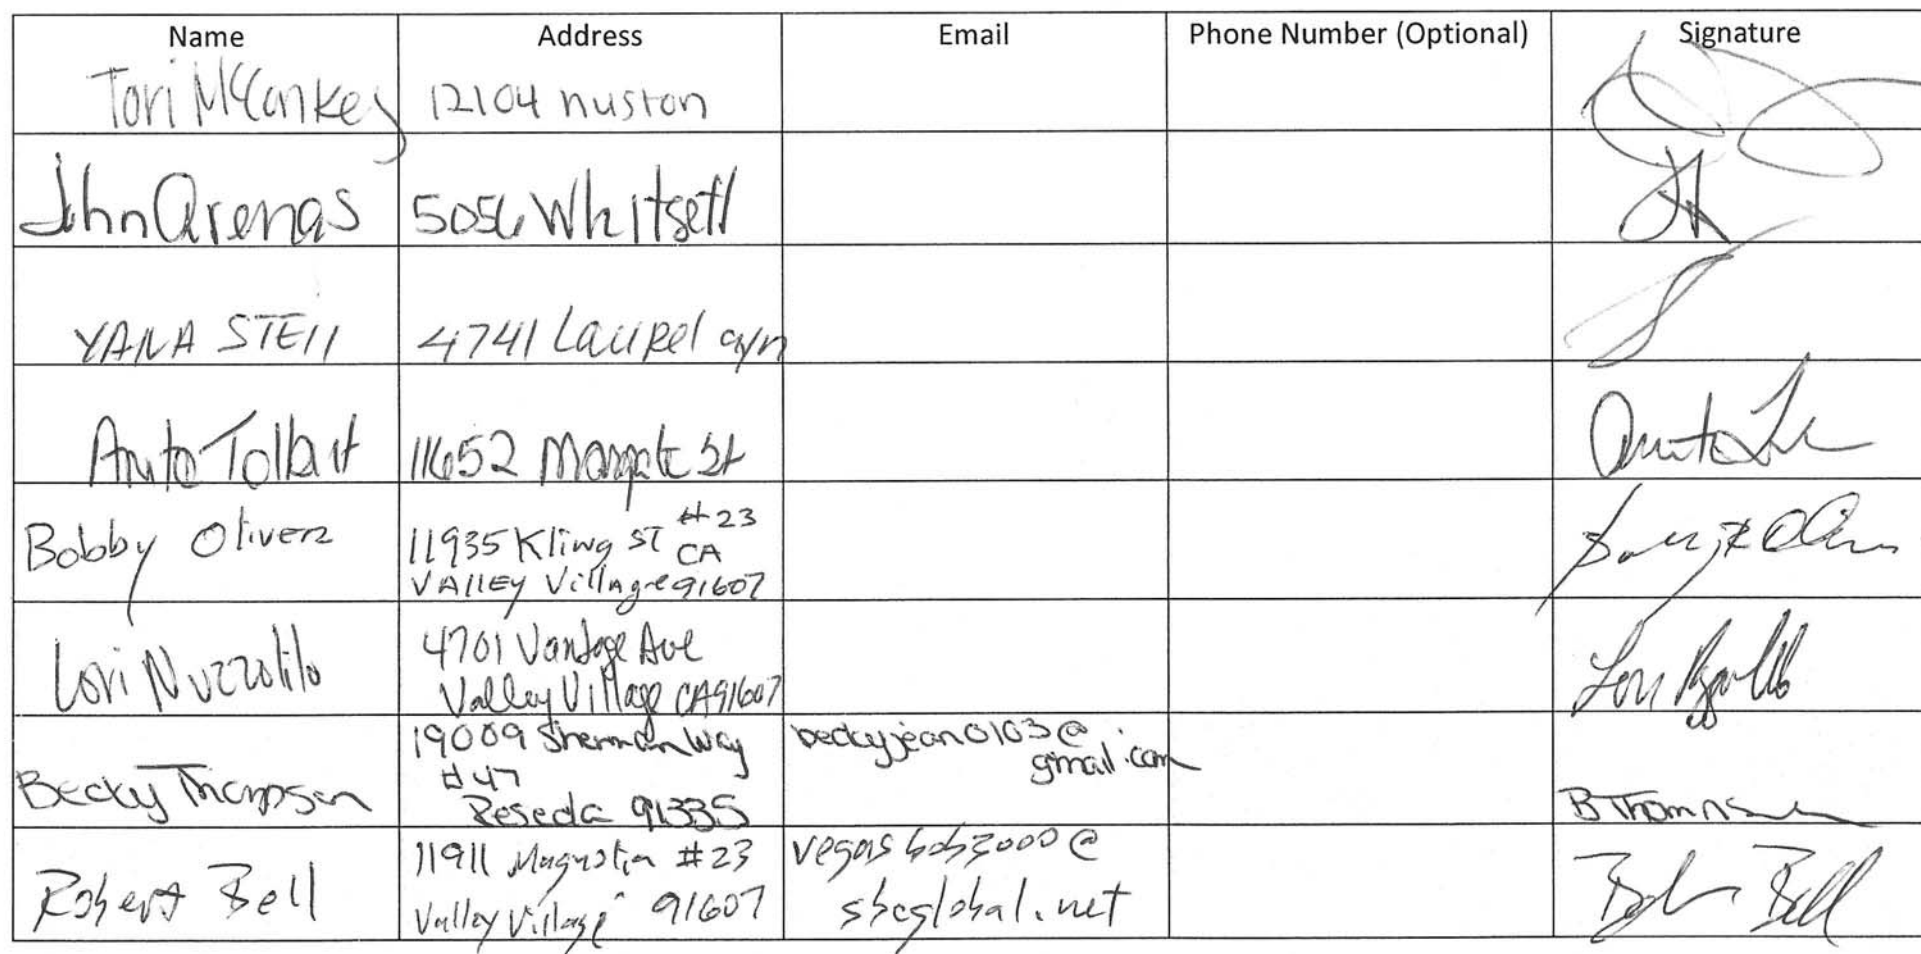 Name Address Email Phone Number (Optional) Signature
Tori McConkey 12104 huston
John Arenas 5056 Whitsett
YANA STEII 4741 Laurel cyn
Anita Tolbert 11652 Margate St
Bobby Oliver 11935 Kling ST #23
CA
VAllEy Village 91607
Lori Nuzzolilo 4701 Vantage Ave
Valley Village CA 91607
Becky Thompson 19009 Sherman Way
#47
Reseda 91335
beckyjean0103@
gmail.com
B Thompson
Robert Bell 11911 Magnolia #23
Valley Village 91607
vegasbob3000@
sbcglobal.net
Bob Bell